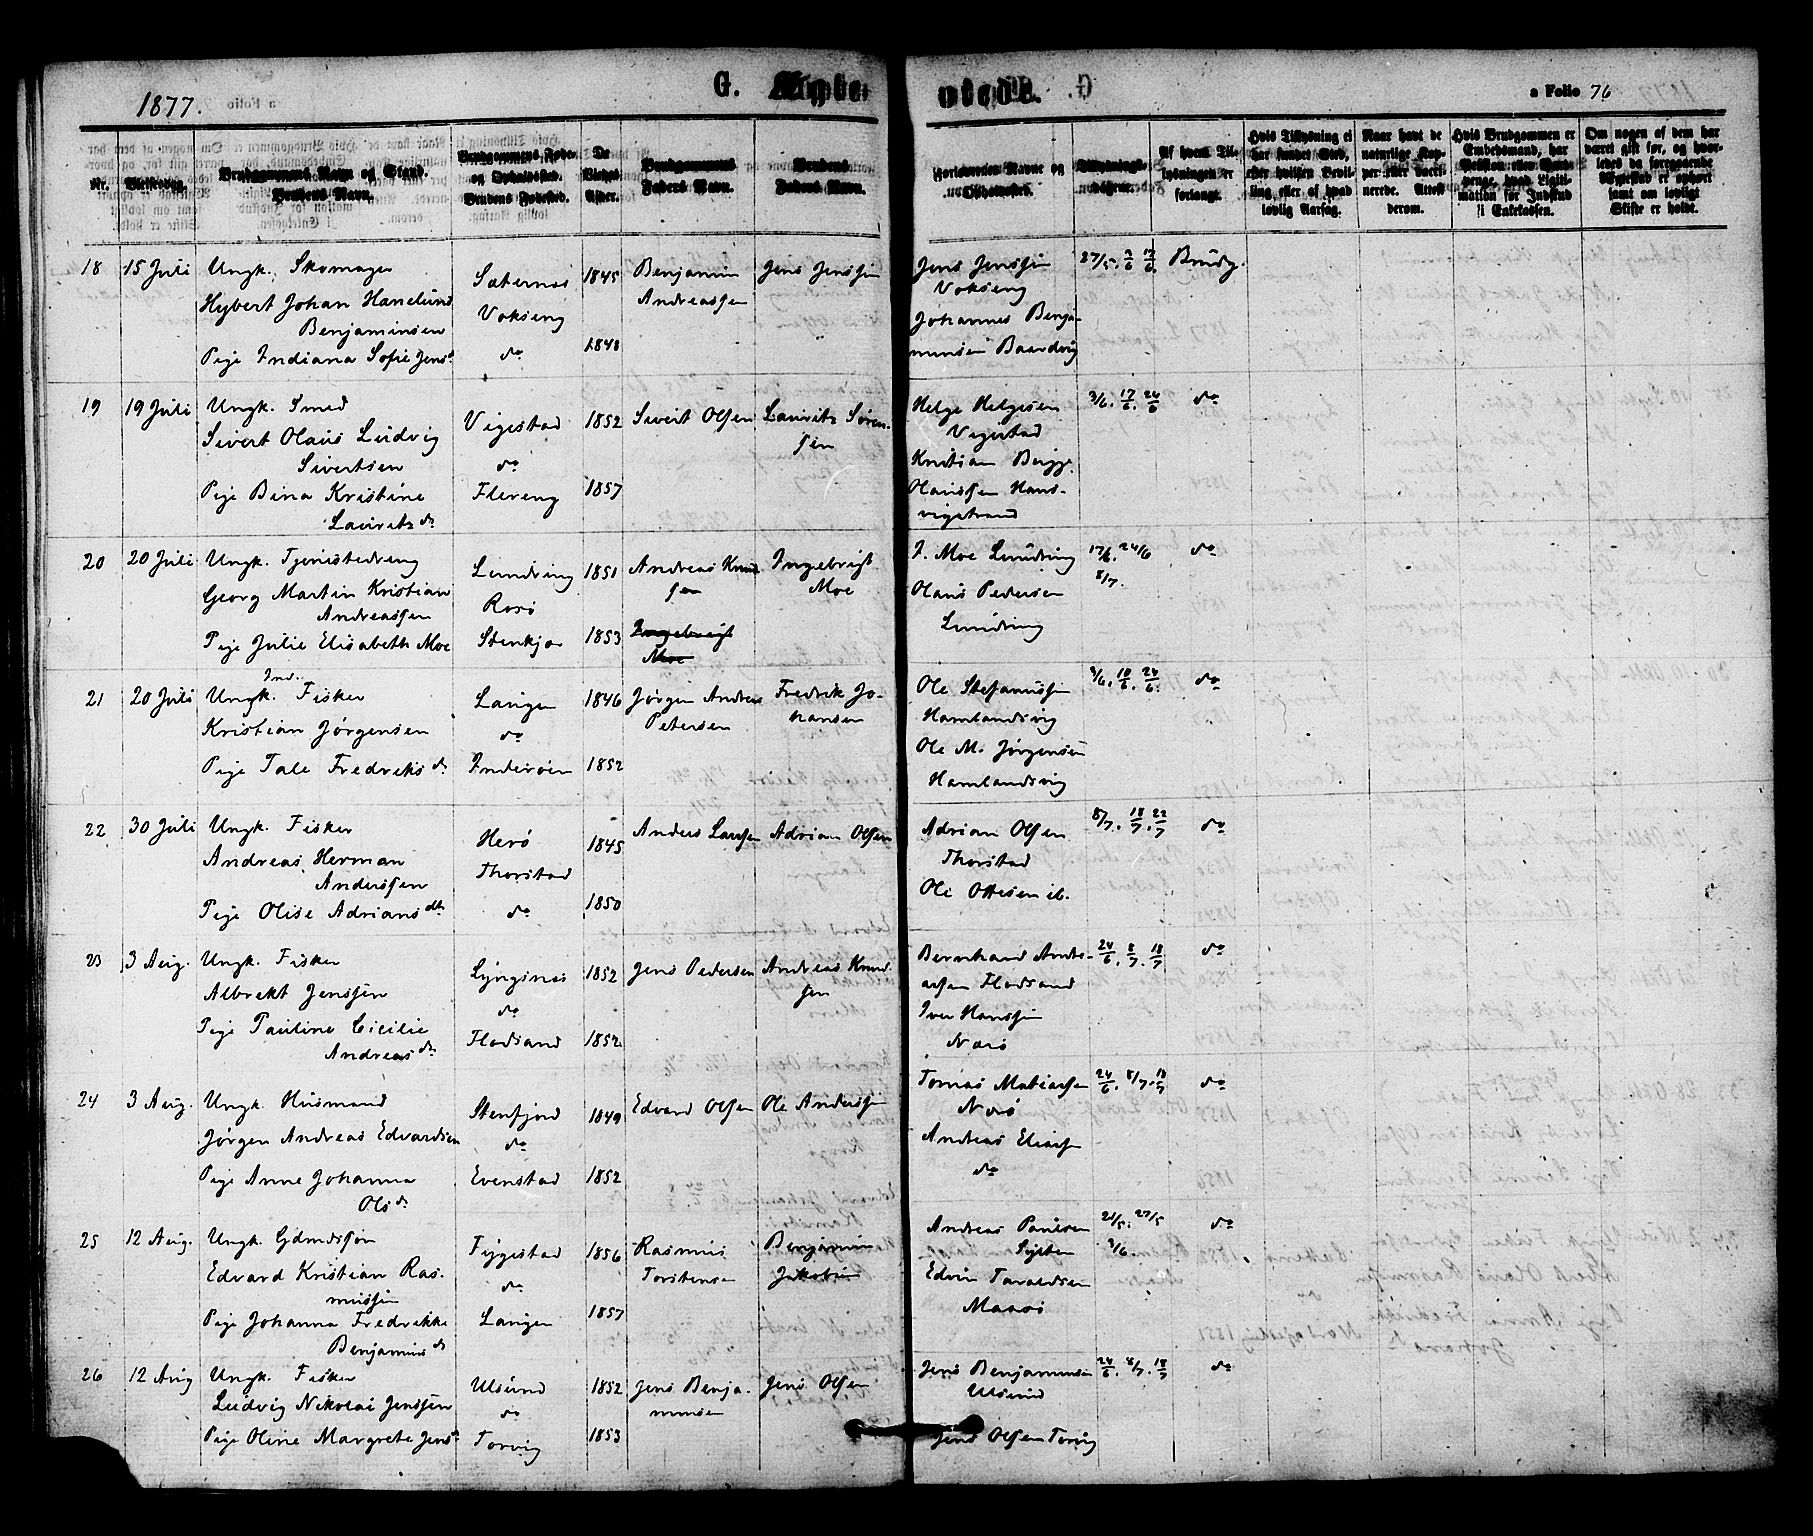 1877.
G. Ægte-
viede.
a Folio 76
Nr.
Vielsesdag.
Brudgommens Navn og Stand.
Brudens Navn.
Brudgommens Føde-
og Opholdssted.
Brudens Fødested.
De
Viedes
Alder.
Brudgommens
Faders Navn.
Brudens
Faders Navn.
Forlovernes Navne og
Opholdssted.
Tillysnings-
dagene.
Af hvem Til-
lysningen er
forlangt.
Hvis Tillysning ei
har fundet Sted,
efter hvilken Bevil-
ling eller af hvad
lovlig Aarsag.
Naar havt de
naturlige Kop-
per eller vacci-
nerede. Attest
derom.
Hvis Brudgommen er
Embedsmand, har
Om nogen af dem har
været gift før, og hvor-
ledes da foregaaende
Ægteskab er ophørt
samt om lovligt
Skifte er holdt.
18 15 Juli Ungk. Skomager Sæternes 1845 Benjamin Jens Jenssen Jens Jenssen 27/5. 3/6 17/6. Brudg.
Hybert Johan Hanelund Andreassen Vokseng
Benjaminsen Vokseng Johannes Benja-
Pige Indiana Sofie Jensd. do 1848 minsen Baardvig
19 19 Juli Ungk. Smed Vigestad 1852 Sivert Olsen Lauritz Søren- Helge Helgesen 3/6. 17/6. 24/6 do
Sivert Olaus Ludvig sen Vigestad
Sivertsen do Kristian Bergg.
Pige Bina Kristine Flereng 1857 Olaussen Hans-
Lauritzd. vigstrand
20 20 Juli Ungk. Tjenestedreng Lundring 1851 Andreas Knud- Ingebrigt I. Moe Lundring 17/6. 24/6 do
Georg Martin Kristian Rosø sen Moe Olaus Pedersen 8/7.
Andreassen Lundring
Pige Julie Elisabeth Moe Stenkjær 1853 Ingebrigt
Moe
21 20 Juli Ungk. Ind. Fisker Langen 1846 Jørgen Andreas Fredrik Jo- Ole Stefanussen 3/6. 10/6. 24/6. do
Kristian Jørgensen do Petersen hansen Hamlandsvig
Pige Tale Fredriksd. Inderøen 1852 Ole M. Jørgensen
Hamlandsvig
22 30 Juli Ungk. Fisker Herø 1845 Anders Larsen Adrian Olsen Adrian Olsen 8/7. 18/7. 22/7 do
Andreas Herman Thorstad Thorstad
Anderssen Ole Ottesen ib.
Pige Olise Adriansdtr. do 1850
23 3 Aug. Ungk. Fisker Lyngsnes 1852 Jens Pedersen Andreas Knud- Bernhard Andre- 24/6. 8/7. 18/7 do
Albrekt Jenssen do sen assen Flodsand
Pige Pauline Cicilie Flodsand 1852 Iver Hanssen
Andreasd. Nærø
24 3 Aug. Ungk. Husmand Stenfjord 1849 Edvard Olsen Ole Anderssen Tomas Matiassen 24/6. 8/7. 18/7 do
Jørgen Andreas Edvardsen do Nærø
Pige Anne Johanna Evenstad 1852 Andreas Eliassen
Olsd. do
25 12 Aug. Ungk. Gdmdssøn Fygestad 1856 Rasmus Benjamin Andreas Paulsen 21/5. 27/5 do
Edvard Kristian Ras- do Torstensen Jakobsen 3/6.
mussen Edvin Taraldsen
Pige Johanna Fredrikke Langen 1857 Marøi
Benjaminsd.
26 12 Aug Ungk. Fisker Ulsund 1852 Jens Benja- Jens Olsen Jens Benjaminsen 24/6. 8/7. 18/7 do
Ludvig Nikolai Jenssen do minsen Ulsund
Pige Oline Margrete Jensd. Torvig 1853 Jens Olsen Torvig